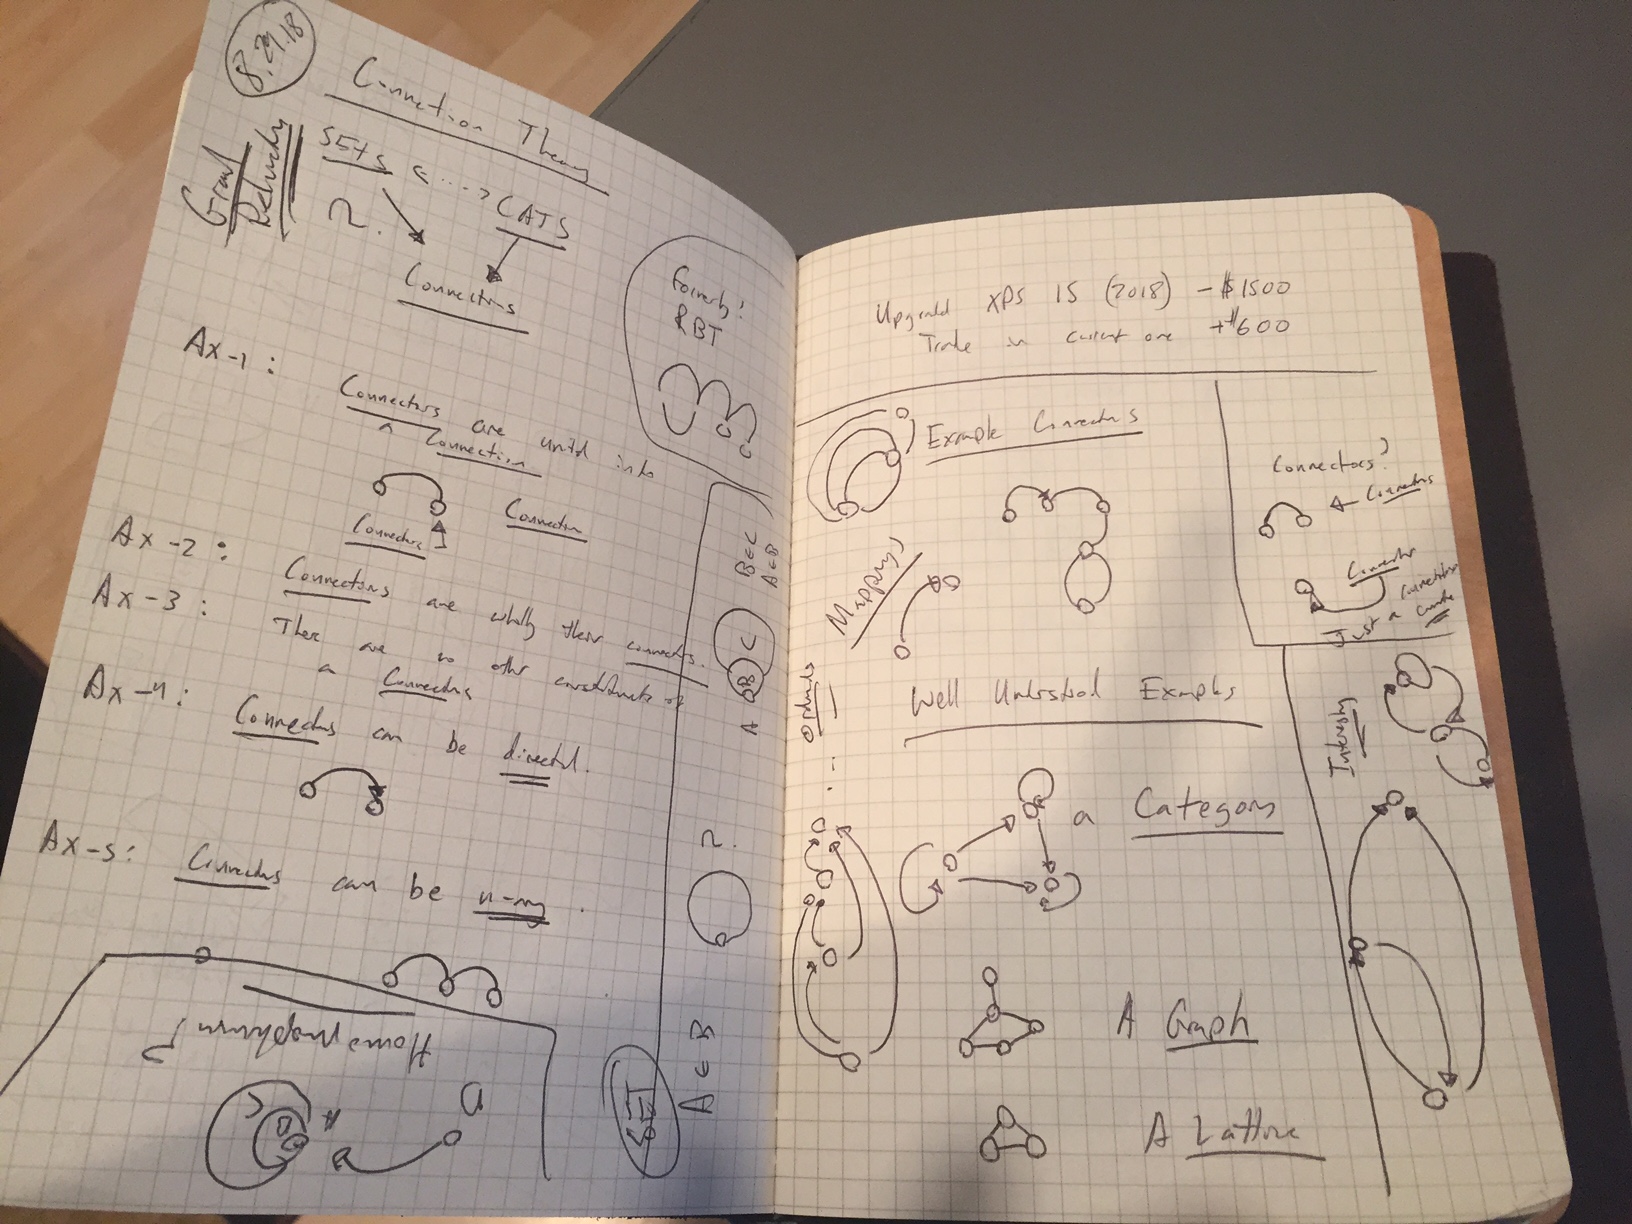 8.29.18
Connection Theory
SETS <...> CATS
?.
Connectors
Formerly:
RBT
Ax-1:
Connectors are united into
a Connection
Connectors
Connection
Ax-2:
Connections are wholly their connectors.
Ax-3:
There are no other constituents of
a Connection
Ax-4:
Connectors can be directed.
Ax-5:
Connectors can be n-ary.
Homomorphism?
B ∈ C
A ∈ B
A B C
?.
A ∈ B
SET
Upgrade XPS 15 (2018) -$1500
Trade in current one +$600
Example Connectors
Mappings
Connectors?
Connectors
Connector
Just a
Well Understood Examples
Interesting
a Category
A Graph
A Lattice